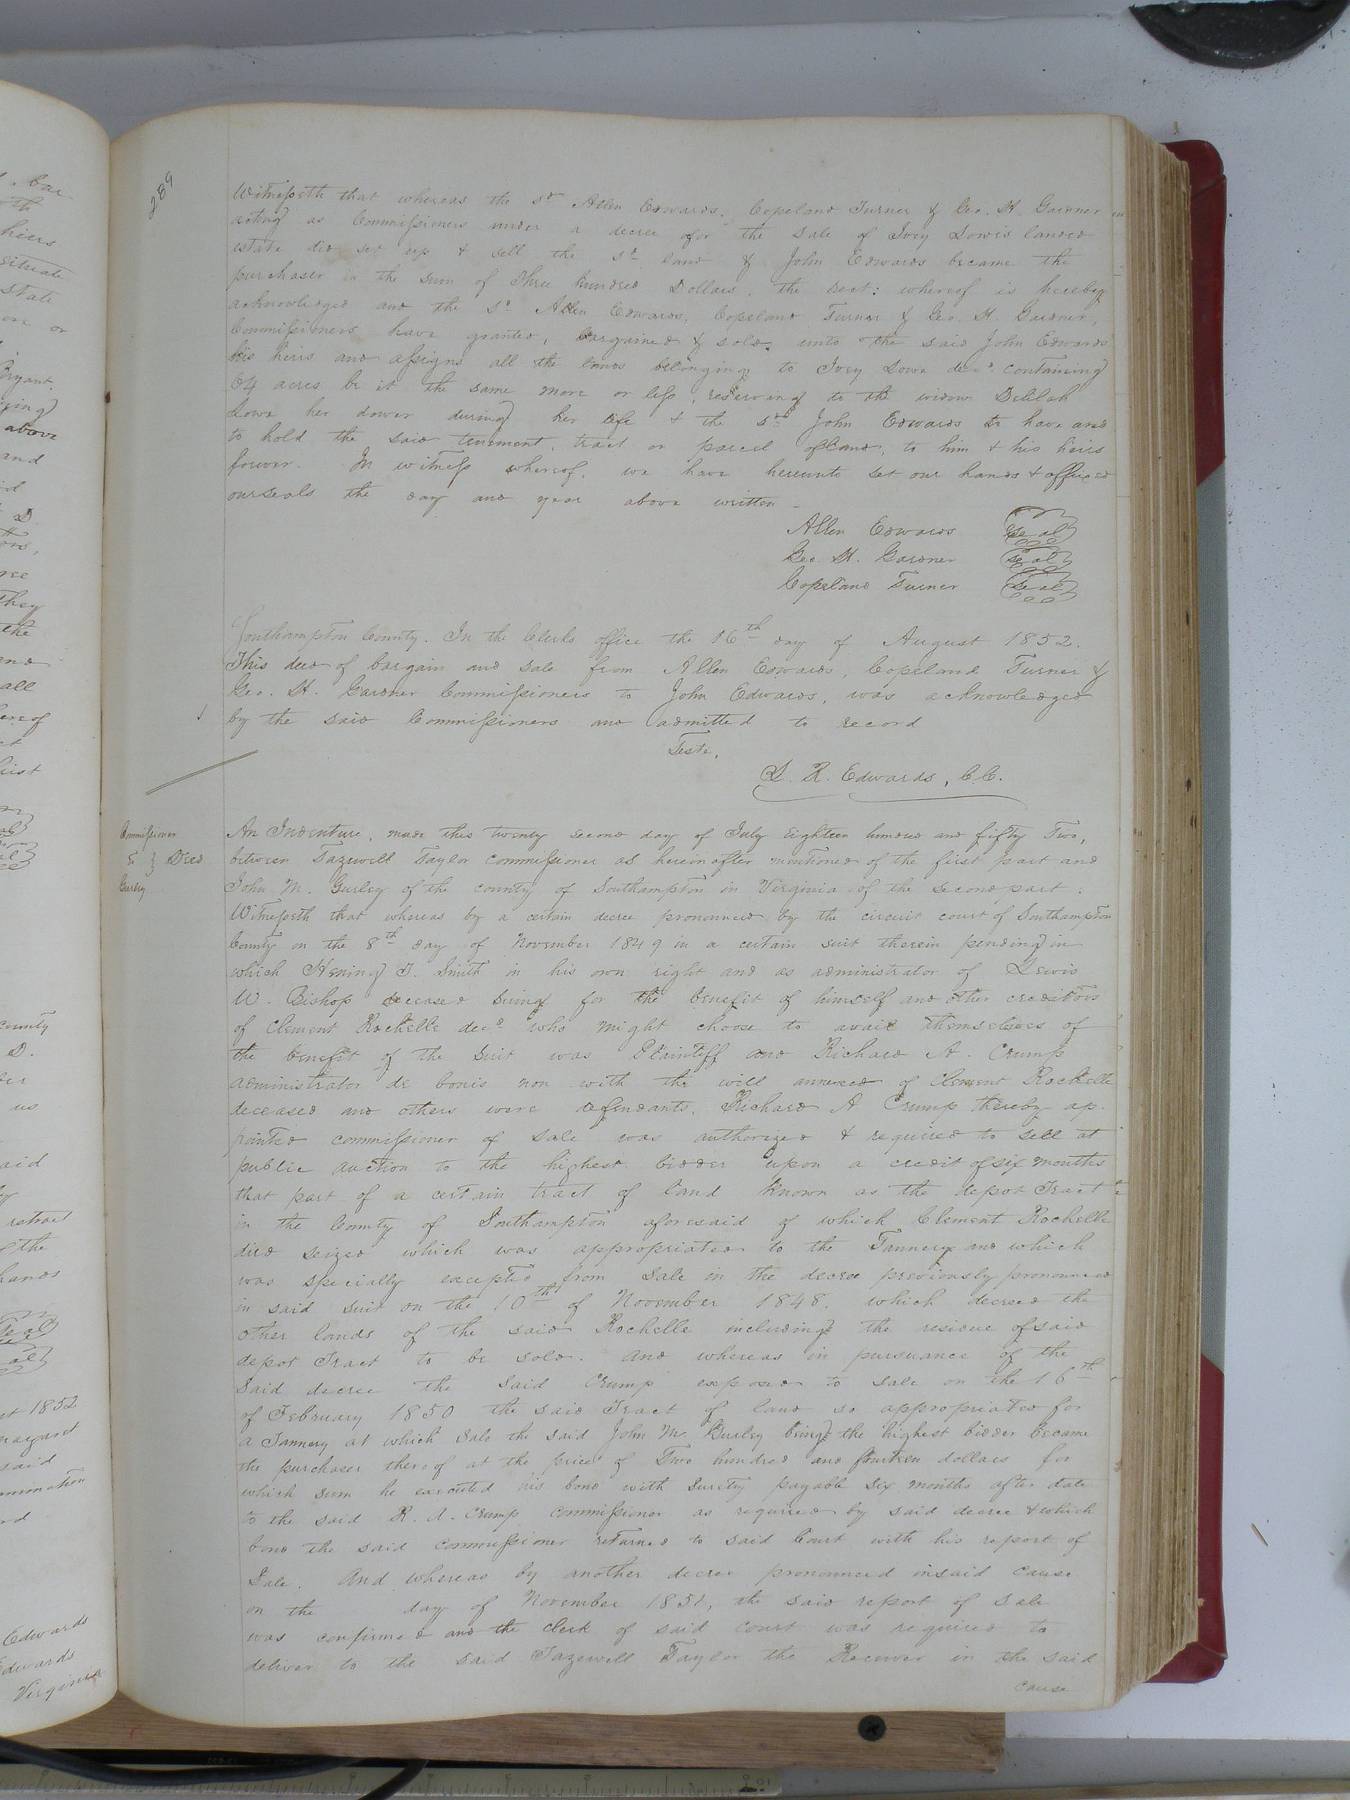 289
Witnesseth that whereas the sd Allen Edwards, Copeland Turner & Geo. H. Gardner
acting as Commissioners under a decree for the sale of Ivey Lowis landed
estate did set up & sell the sd land & John Edwards became the
purchaser in the sum of Three hundred Dollars, the rect: whereof is hereby
acknowledged and the sd Allen Edwards, Copeland Turner & Geo. H. Gardner,
Commissioners have granted, bargained & sold, unto the said John Edwards
his heirs and assigns all the lands belonging to Ivey Lowe decd containing
64 acres be it the same more or less, reserving to the widow Delilah
Lowe her dower during her life & the sd John Edwards to have and
to hold the said tenement, tract or parcel of land, to him & his heirs
forever. In witness whereof, we have hereunto set our hands & affixed
our seals the day and year above written.
Allen Edwards seal
Geo. H. Gardner seal
Copeland Turner seal
Southampton County. In the Clerks office the 16th day of August 1852.
This deed of bargain and sale from Allen Edwards, Copeland Turner &
Geo. H. Gardner Commissioners to John Edwards, was acknowledged
by the said Commissioners and admitted to record
Teste,
L. R. Edwards, C.C.
Commissioner
to } Deed
Gurley
An Indenture, made this twenty second day of July Eighteen hundred and fifty Two,
between Tazewell Taylor commissioner as hereinafter mentioned of the first part and
John M. Gurley of the county of Southampton in Virginia of the second part:
Witnesseth that whereas by a certain decree pronounced by the circuit court of Southampton
County on the 8th day of November 1849 in a certain suit therein pending in
which Hening T. Smith in his own right and as administrator of Lewis
W. Bishop deceased suing for the benefit of himself and other creditors
of Clement Rochelle decd who might choose to avail themselves of
the benefit of the suit was Plaintiff and Richard A. Crump
administrator de bonis non with the will annexed of Clement Rochelle
deceased and others were defendants, Richard A Crump thereby ap-
pointed commissioner of sale was authorized & required to sell at
public auction to the highest bidder upon a credit of six months
that part of a certain tract of land known as the depot Tract
in the County of Southampton aforesaid of which Clement Rochelle
died seized which was appropriated to the Tannery and which
was specially excepted from sale in the decree previously pronounced
in said suit on the 10th of November 1848, which decreed the
other lands of the said Rochelle including the residue of said
depot Tract to be sold. And whereas in pursuance of the
said decree the said Crump exposed to sale on the 16th
of February 1850 the said Tract of land so appropriated for
a Tannery at which sale the said John M. Gurley being the highest bidder became
the purchaser thereof at the price of Two hundred and fourteen dollars for
which sum he executed his bond with surety payable six months after date
to the said R. A. Crump commissioner as required by said decree & which
bond the said commissioner returned to said Court with his report of
Sale. And whereas by another decree pronounced in said cause
on the day of November 1851, the said report of sale
was confirmed and the clerk of said court was required to
deliver to the said Tazewell Taylor the Receiver in the said
cause